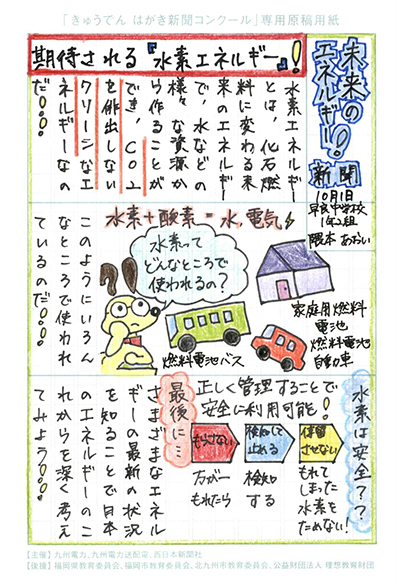 「きゅうでん はがき新聞コンクール」専用原稿用紙
未来の
エネルギー!
新聞
10月1日
早良中学校
1年2組
隈本 あおい
期待される『水素エネルギー』!
水素エネルギー
とは、化石燃
料に変わる未
来のエネルギー
で、水などの
様々な資源か
ら作ることが
でき、CO2
を排出しない
クリーンなエ
ネルギーなの
だ!!!
水素+酸素=水,電気
水素って
どんなところで
使われるの?
家庭用燃料
電池
燃料電池
自動車
燃料電池バス
このようにいろん
なところで使われ
ているのだ!!!
水素は安全??
正しく管理することで
安全に利用可能!
もらさない
検知して
止める
停留
させない
万が一
もれたら
検知
する
もれて
しまった
水素を
ためない!
最後に…
さまざまなエネル
ギーの最新の状況
を知ることで日本
のエネルギーのこ
れからを深く考え
てみよう!!!
【主催】九州電力、九州電力送配電、西日本新聞社
【後援】福岡県教育委員会、福岡市教育委員会、北九州市教育委員会、公益財団法人 理想教育財団